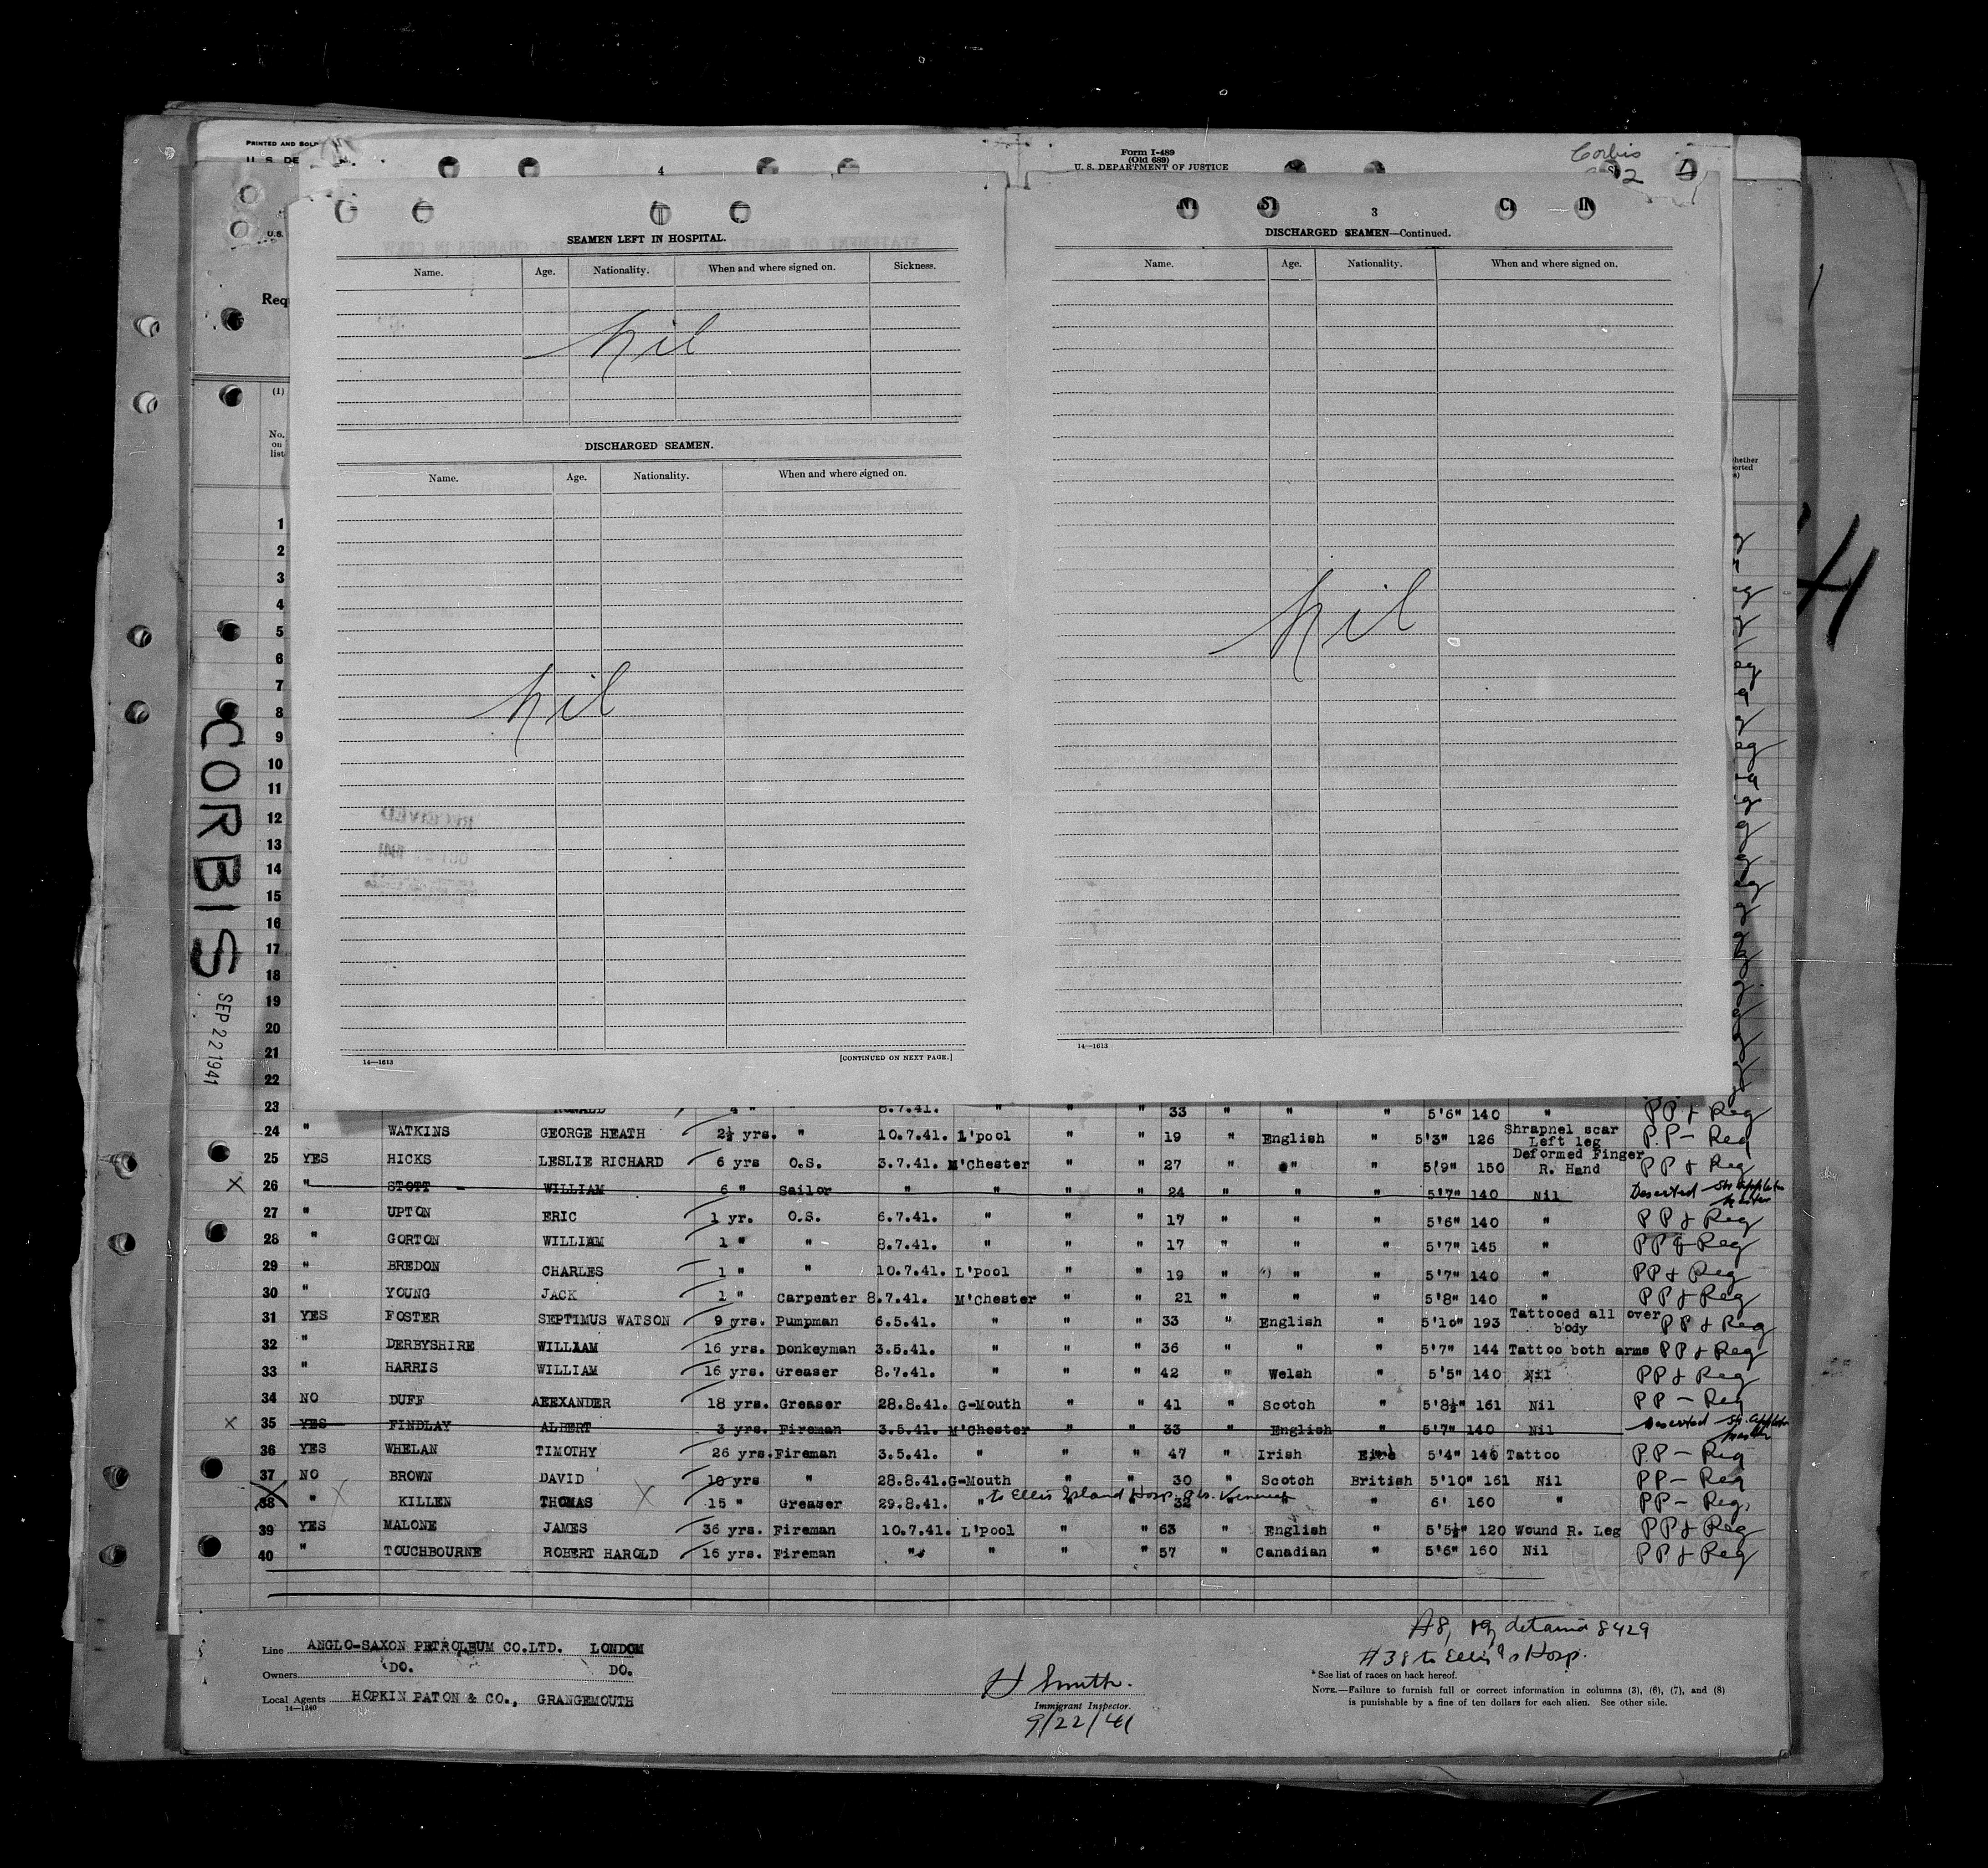 PRINTED AND SOLD
U. S. DE
U.S.
Req
(1)
No. on list
Form I-489
(Old 689)
U. S. DEPARTMENT OF JUSTICE
Corbis
2
4
SEAMEN LEFT IN HOSPITAL.
Name. Age. Nationality. When and where signed on. Sickness.
Nil
DISCHARGED SEAMEN.
Name. Age. Nationality. When and where signed on.
Nil
14—1613 [CONTINUED ON NEXT PAGE.]
3
DISCHARGED SEAMEN—Continued.
Name. Age. Nationality. When and where signed on.
Nil
14—1613
4
CORBIS
SEP 22 1941
1
2
3
4
5
6
7
8
9
10
11
12
13
14
15
16
17
18
19
20
21
22
23 RONALD 4 " 8.7.41. " " " 33 " " " 5'6" 140 " PP & Reg
24 " WATKINS GEORGE HEATH 2½ yrs. " 10.7.41. l'pool " " 19 " English " 5'3" 126 Shrapnel scar Left leg P.P - Reg
25 YES HICKS LESLIE RICHARD 6 yrs O.S. 3.7.41. M'Chester " " 27 " " " 5'9" 150 Deformed Finger R. Hand PP & Reg
X 26 " STOTT - WILLIAM 6 " Sailor " " " " 24 " " " 5'7" 140 Nil Deserted
27 " UPTON ERIC 1 yr. O.S. 6.7.41. " " " 17 " " " 5'6" 140 " PP & Reg
28 " GORTON WILLIAM 1 " " 8.7.41. " " " 17 " " " 5'7" 145 " PP & Reg
29 " BREDON CHARLES 1 " " 10.7.41. L'pool " " 19 " " " 5'7" 140 " PP & Reg
30 " YOUNG JACK 1 " Carpenter 8.7.41. M'Chester " " 21 " " " 5'8" 140 " PP & Reg
31 YES FOSTER SEPTIMUS WATSON 9 yrs. Pumpman 6.5.41. " " " 33 " English " 5'10" 193 Tattooed all over body PP & Reg
32 " DERBYSHIRE WILLIAM 16 yrs. Donkeyman 3.5.41. " " " 36 " " " 5'7" 144 Tattoo both arms PP & Reg
33 " HARRIS WILLIAM 16 yrs. Greaser 8.7.41. " " " 42 " Welsh " 5'5" 140 Nil PP & Reg
34 NO DUFF ALEXANDER 18 yrs. Greaser 28.8.41. G-Mouth " " 41 " Scotch " 5'8½" 161 Nil PP - Reg
X 35 YES FINDLAY ALBERT 3 yrs. Fireman 3.5.41. M'Chester " " 33 " English " 5'7" 140 Nil Deserted
36 YES WHELAN TIMOTHY 26 yrs. Fireman 3.5.41. " " " 47 " Irish Eire 5'4" 140 Tattoo P.P - Reg
37 NO BROWN DAVID 10 yrs " 28.8.41. G-Mouth " " 30 " Scotch British 5'10" 161 Nil PP - Reg
38 " X KILLEN THOMAS X 15 " Greaser 29.8.41. " to Ellis Island Hosp. 32 " " " 6' 160 " PP - Reg.
39 YES MALONE JAMES 36 yrs. Fireman 10.7.41. L'pool " " 63 English " 5'5½" 120 Wound R. Leg PP & Reg
40 " TOUCHBOURNE ROBERT HAROLD 16 yrs. Fireman " " " " 57 " Canadian " 5'6" 160 Nil PP & Reg
Line ANGLO-SAXON PETROLEUM CO.LTD. LONDON
Owners DO. DO.
Local Agents HOPKIN PATON & CO., GRANGEMOUTH
14—1240
H Smith.
Immigrant Inspector.
9/22/41
#8, 19, detained 8429
#38 to Ellis Is Hosp.
* See list of races on back hereof.
NOTE.—Failure to furnish full or correct information in columns (3), (6), (7), and (8)
is punishable by a fine of ten dollars for each alien. See other side.